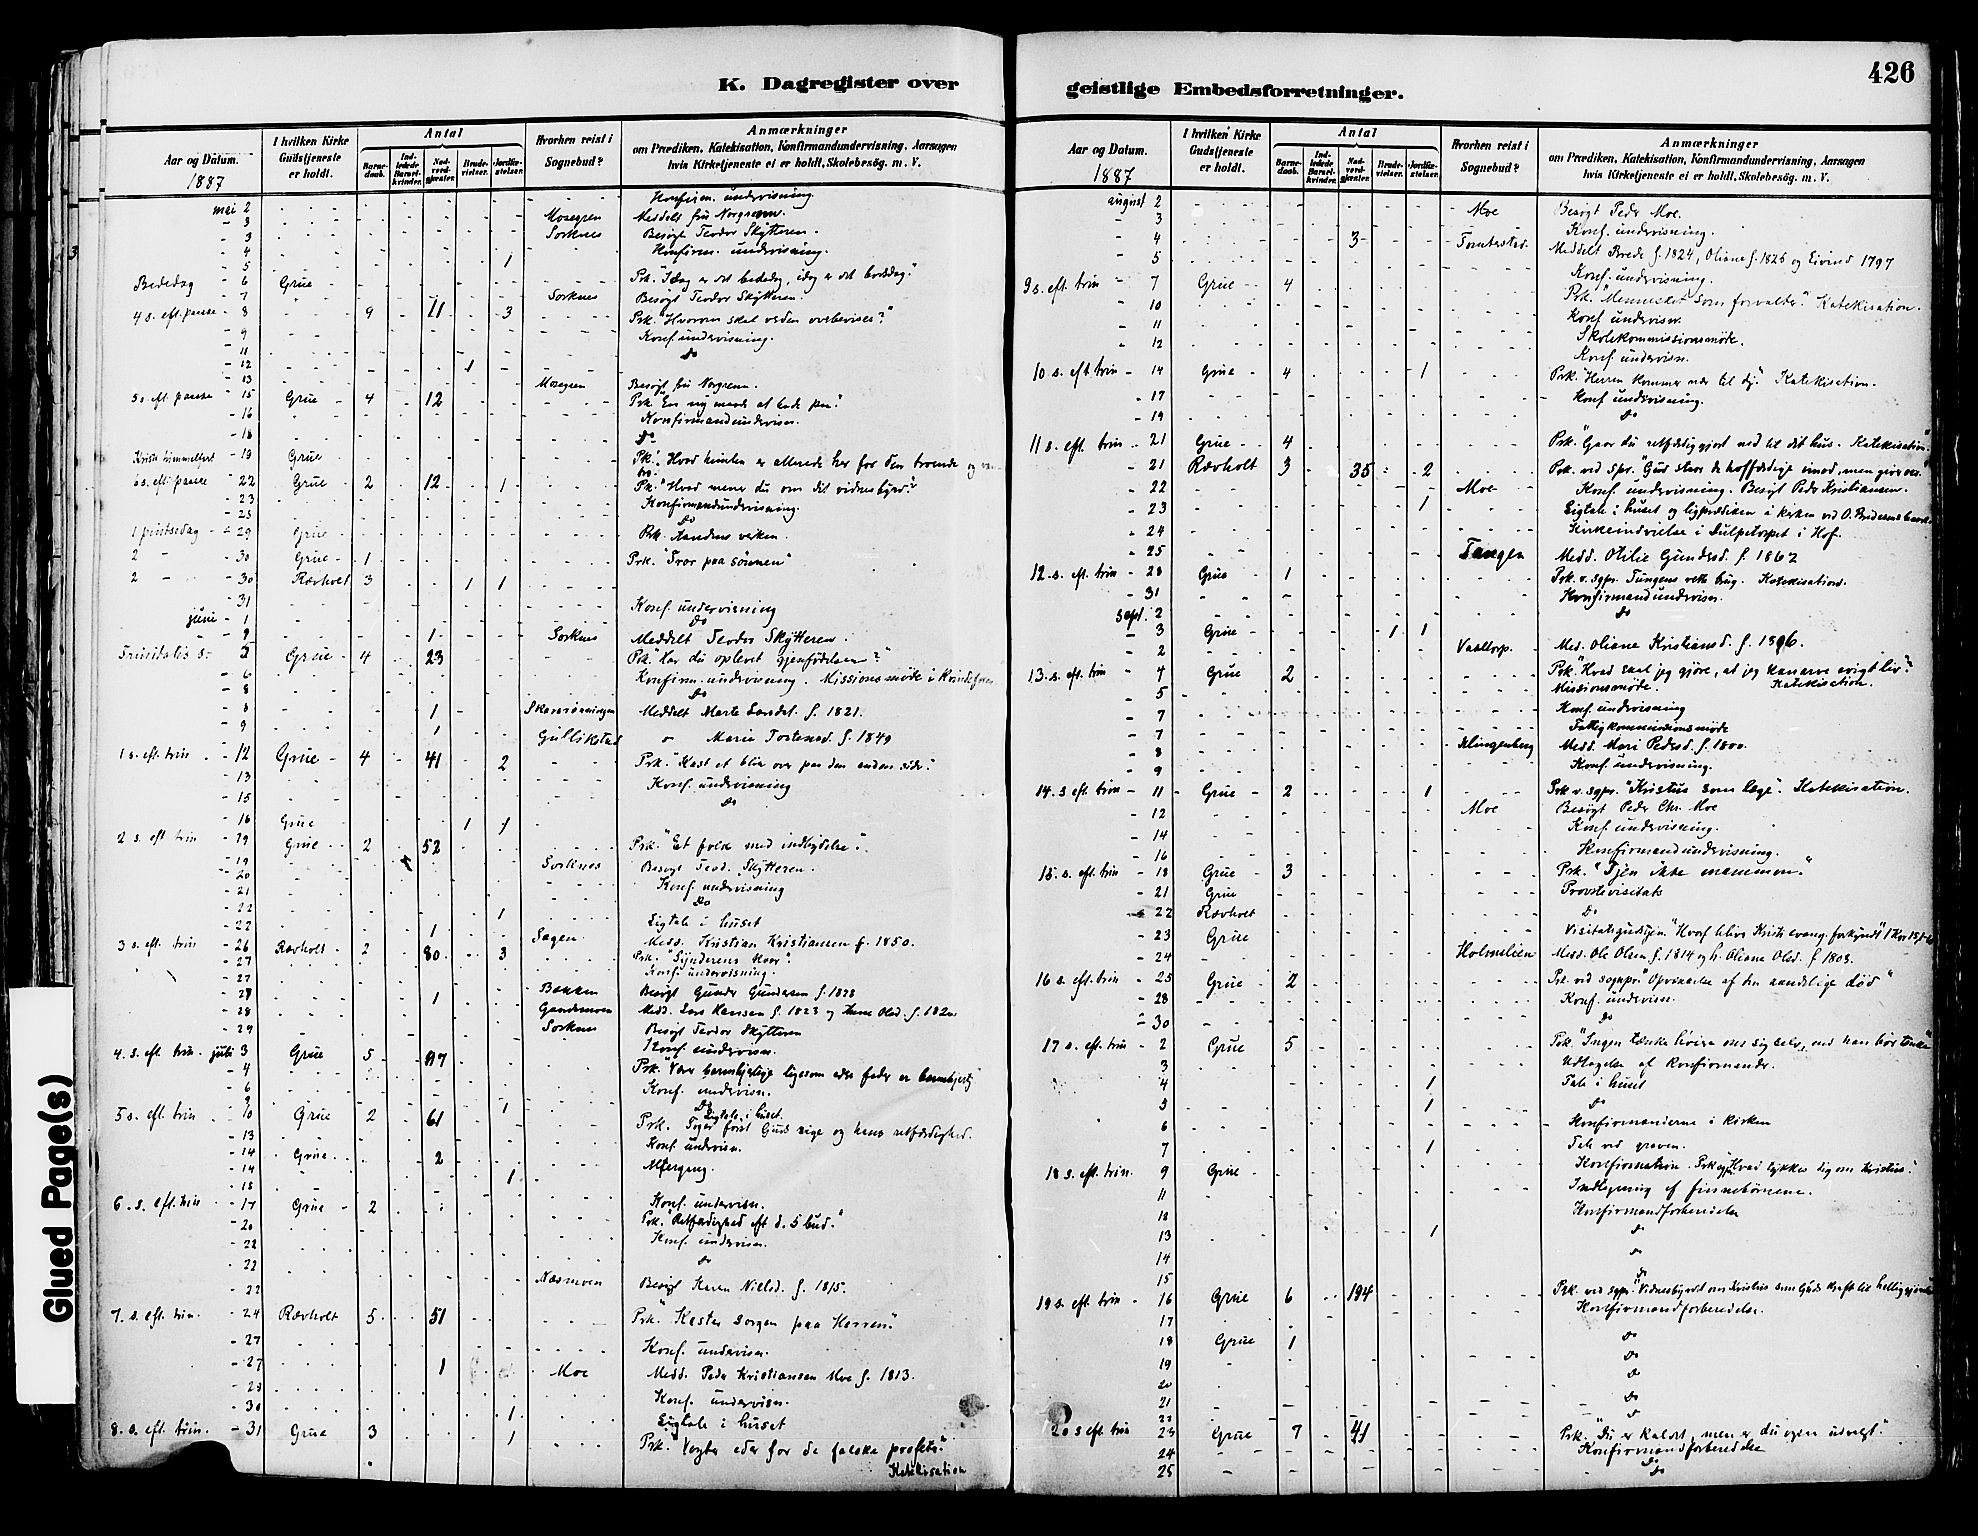 K. Dagregister over
Aar og Datum.
1887
I hvilken Kirke Gudstjeneste er holdt.
Antal
Barnedaab.
Indledede Barselkvinder.
Nadverdgjæster.
Brudevielser.
Jordfæstelser.
Hvorhen reist i Sognebud?
Anmærkninger
om Prædiken, Katekisation, Konfirmandundervisning, Aarsagen
hvis Kirketjeneste ei er holdt, Skolebesög. m. V.
mai 2 Konfirm. undervisning
- 3 Mosegren Meddelt fru Norgrenn.
- 3 Sorknes Besögt Teodor Skytteren.
- 4 Konfirm. undervisning.
- 5 1
Bededag - 6 Grue Prk. "Idag er det bededag, idag er det bodsdag."
- 7 Sorknes Besögt Teodor Skytteren.
4 s. eft. paaske - 8 9 21 3 Prk. "Hvorom skal verden overbevises?"
- 9 Konf. undervisning.
- 11 Do
- 12 1
- 13 Mosegren Besögt fru Norgrenn.
5 s. eft. paaske - 15 Grue 4 12 Prk. "En ny maade at bede paa."
- 16 Konfirmandundervisn.
- 18 Do
Kristi himmelfart - 19 Grue Prk. "Hvad himlen er allerede her for den troende og
6 s. eft. paaske - 22 Grue 2 12 1 Prk. "Hvad mener du om dit vidnesbyrd?"
- 23 Konfirmandundervisning.
- 25 Do
1 pintsedag - 29 Grue Prk. Aandens verken.
2 - - 30 Grue 1 Prk. "Tror paa sönnen"
2 - - 30 Rævholt 3 1 1
- 31 Konf. undervisning
juni - 1 Do
1 Sorknes Meddelt Teodor Skytteren.
Trinitatis s. - 5 Grue 4 23 Prk. "Har du oplevet gjenfödelsen?"
- 6 Konfirm. undervisning. Missionsmöde i
- 8 Do
- 8 1 Meddelt Marte Larsdat. f. 1821.
- 9 1 Gullikstad Marie Tostensd. f. 1849
1 s. eft. trin - 12 Grue 4 41 2
- 13 Konf. undervisning
- 15 Do
- 16 Grue 1 1
2 s. eft. trin - 19 Grue 2 52 Prk. "Et folk med indbydelse".
- 19 Sorknes Besögt Teod. Skytteren.
- 20 Konf. undervisning
- 21 Do
- 22 1 Ligtale i huset
- 22 1 Sagen Medd. Kristian Kristiansen f. 1850.
3 s. eft. trin - 26 Rævholt 2 80 3 Prk. "Synderens
- 27 Konf. undervisning.
- 27 Bakken Besögt Gunder Gundersen f. 1828
- 28 1 Medd. Lars Hansen f. 1823 og
- 29 Sorknes Besögt Teodor Skytteren
Konf. undervisn.
4. s. eft. trin. juli 3 Grue 5 97 Prk. "Vær barmhjertige ligesom eders fader er barmhjertig"
- 4 Konf. undervisn.
- 6 Do
1 Ligtale i huset.
5 s. eft. trin - 10 Grue 2 61 Prk. Söger först Guds rige og hans retfærdighed.
- 13 Konf. undervisn.
- 14 Grue 2 Altergang.
- 14 1
- 18 Konf. undervisn.
6. s. eft. trin - 17 Grue 2 Prk. "Retfærdighed eft. d. 5 bud."
- 20 Konf. undervisn.
- 22 Do
- 22
- 22 Næsmoen Besögt Karen Nielsd. f. 1815.
7. s. eft. trin. - 24 Rævholt 5 51 Prk. "Kaster sorgen paa Herren."
- 27 Konf. undervisn.
- 27 1 Moe Medd. Peder Kristiansen Moe f. 1813.
- 28 Konf. undervisn.
- 30 1 Ligtale i huset
8. s. eft. trin. - 31 Grue 3 1 Prk. "Vogter eder for de falske profeter."
Katekisation
geistlige Embedsforretninger.
426
Aar og Datum.
1887
I hvilken Kirke Gudstjeneste er holdt.
Antal
Barnedaab.
Indledede Barselkvinder.
Nadverdgjæster.
Brudevielser.
Jordfæstelser.
Hvorhen reist i Sognebud?
Anmærkninger
om Prædiken, Katekisation, Konfirmandundervisning, Aarsagen
hvis Kirketjeneste ei er holdt, Skolebesög. m. V.
august 2 Moe Besögt Peder Moe.
- 3 Konf. undervisning.
- 4 3 Meddelt Brede f. 1824, Oliane f. 1826 og Eivind 1797
- 5 Konf. undervisning.
9 s. eft. trin - 7 Grue 4 Prk. "Mennesket som forvalter." Katekisation.
- 10 Konf. undervisn.
- 11 Skolekommissionsmöde.
- 12 Konf. undervisn.
10 s. eft. trin - 14 Grue 4 1 Prk. "Herren kommer nær til dig." Katekisation.
- 17 Konf. undervisning.
- 19 Do
11 s. eft. trin - 21 Grue 4 Prk. "Gaar du retfærdiggjort ned til dit hus. Katekisation"
- 21 Rævholt 3 35 2 Prk. ved spr. "Gud staar de hoffærdige imod, men giver
- 22 Moe Konf. undervisning. Besögt Peder Kristiansen.
- 23 1 Ligtale i huset og ligprædiken i kirken ved O.
- 24 Kirkeindvielse i i Hof.
- 25 Tangen Medd. Otilie Gundersd. f. 1862
12. s. eft. trin - 28 Grue 1 Prk. v. sgpr. Tungens rette brug. Katekisation.
- 31 Konfirmandundervisn.
Sept. 2 Do
- 3 Grue 1 1
- 2 Med. Oliane Kristiansd. f.
13. s. eft. trin - 4 Grue 2 Prk. "Hvad skal jeg gjöre, at jeg kan arve evigt liv?"
- 5 Missionsmöde. Katekisation.
- 7 Konf. undervisning
- 7 Fattigkommissionsmöde
- 8 Klingenberg Medd. Mari Pedersd. f. 1800.
- 9 Konf. undervisning.
14. s eft. trin - 11 Grue 2 1 Prk v. sgpr. "Kristus som læge". Katekisation.
- 12 Moe Besögt Peder Chr. Moe
- 14 Konf. undervisning.
- 16 Konfirmandundervisning.
15. s. eft. trin - 18 Grue 3 Prk. "Tjen ikke mammon."
- 21 Grue Provstevisitats
- 22 Rævholt Do
- 23 Grue Visitatsgudstjen. "Hvorf. blive Kristi evang. forkyndt"
- 24 Holmslien Medd. Ole Olsen f. 1814 og h. Oliane Olsd. f. 1808.
16 s. eft. trin - 25 Grue 2 Prk ved sognpr. "Opvaagnelse af den aandelige död"
- 28 Konf. undervisn.
- 30 Do
17 s. eft. trin - 2 Grue 5 Prk. "Ingen tænke höiere om sig selv, end han bör tænke"
3 Udtagelse af Konfirmander.
4 1 Tale i huset
5 1 Do
6 Konfirmanderne i kirken
7 1 Tale ved graven.
18 s. eft. trin. 9 Grue Konfirmation. Prk. Hvad tykkes dig om Kristus.
11 Indlegning af finnebörnene.
12 Konfirmandforberedelse
13 1 do
14 do
15 do
19 s. eft. trin - 16 Grue 6 194 Prk. ved sgpr. "Vidnesbyrdet om Kristus som Guds kraft til
17 Konfirmandforberedelse.
18 Grue 1 Do
19 Do
20 Do
21 Do
22 Do
20 s eft. trin 23 Grue 7 41 Prk. "Du er kaldet, men er du ogsaa udvalgt".
24 Konfirmandforberedelse
25 Do
Glued Page(s)